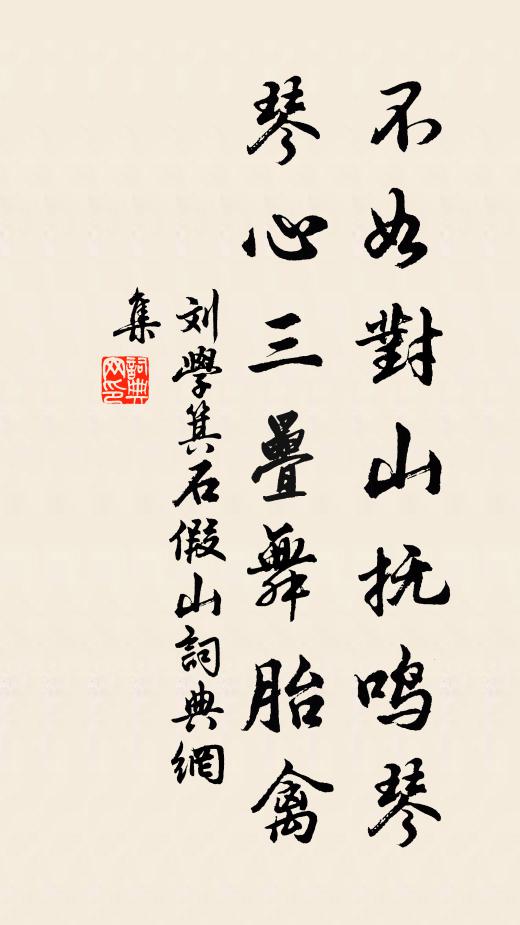 不如對山抚鸣琴
琴心三疊舞胎禽
刘學箕石假山詞典網
集
詞典網印